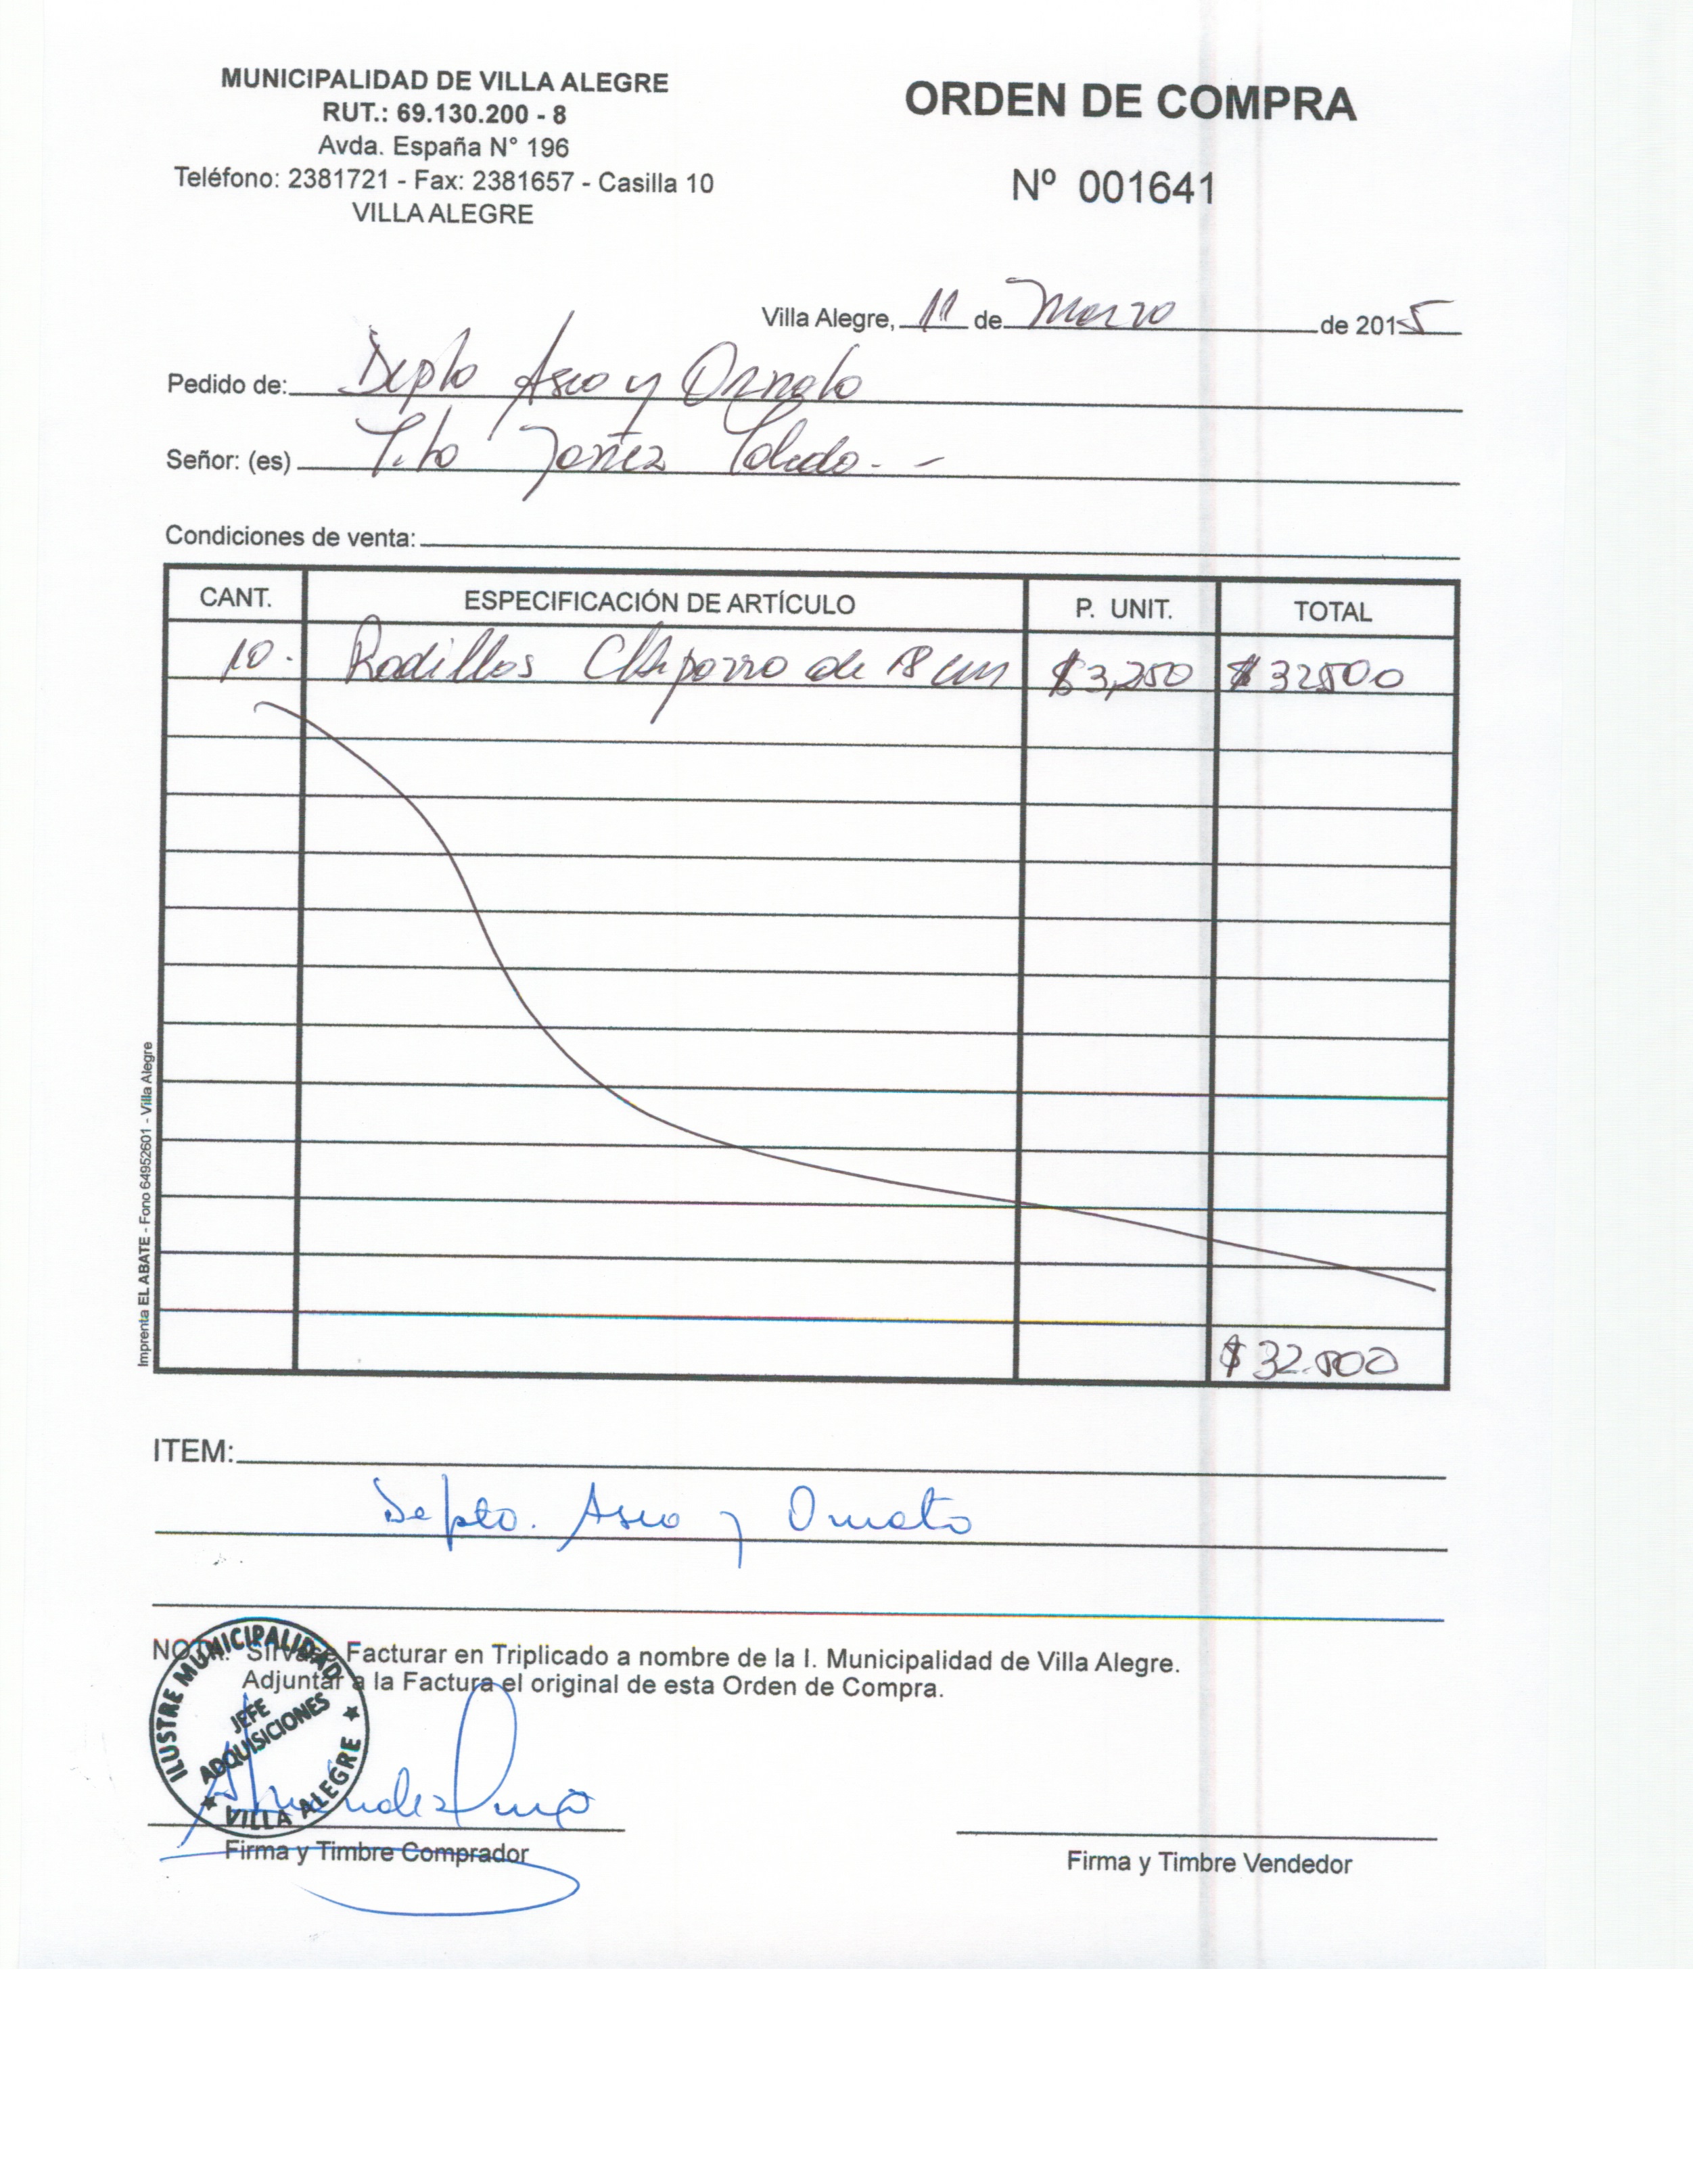 MUNICIPALIDAD DE VILLA ALEGRE
RUT.: 69.130.200 - 8
Avda. España N° 196
Teléfono: 2381721 - Fax: 2381657 - Casilla 10
VILLA ALEGRE
ORDEN DE COMPRA
Nº 001641
Villa Alegre, 11 de Marzo de 2015
Pedido de: Depto Aseo y Ornato
Señor: (es) Tito Yañez Toledo. -
Condiciones de venta:
CANT. ESPECIFICACIÓN DE ARTÍCULO P. UNIT. TOTAL
10. Rodillos Chiporro de 18 cm $3,250 $32500
$32.500
Imprenta EL ABATE - Fono 64952601 - Villa Alegre
ITEM:
Depto. Aseo y Ornato
NOTA: Sírvase Facturar en Triplicado a nombre de la I. Municipalidad de Villa Alegre.
Adjuntar a la Factura el original de esta Orden de Compra.
ILUSTRE MUNICIPALIDAD
JEFE
ADQUISICIONES
VILLA ALEGRE
Firma y Timbre Comprador
Firma y Timbre Vendedor